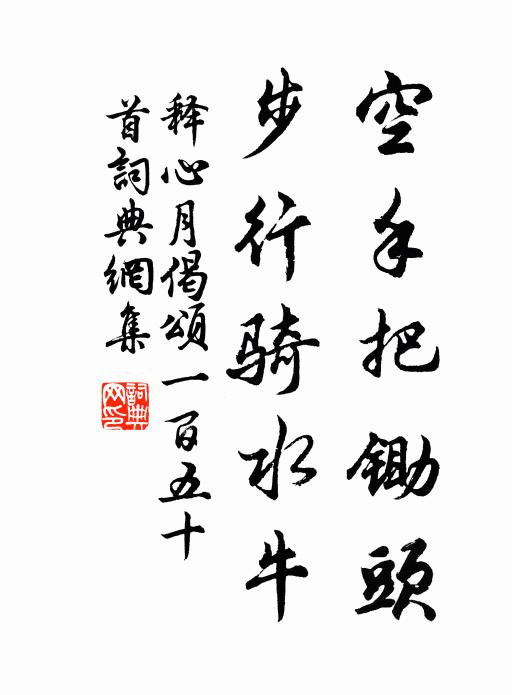 空手把鋤頭
步行骑水牛
释心月偈頌一百五十
首詞典網集
詞典
网印